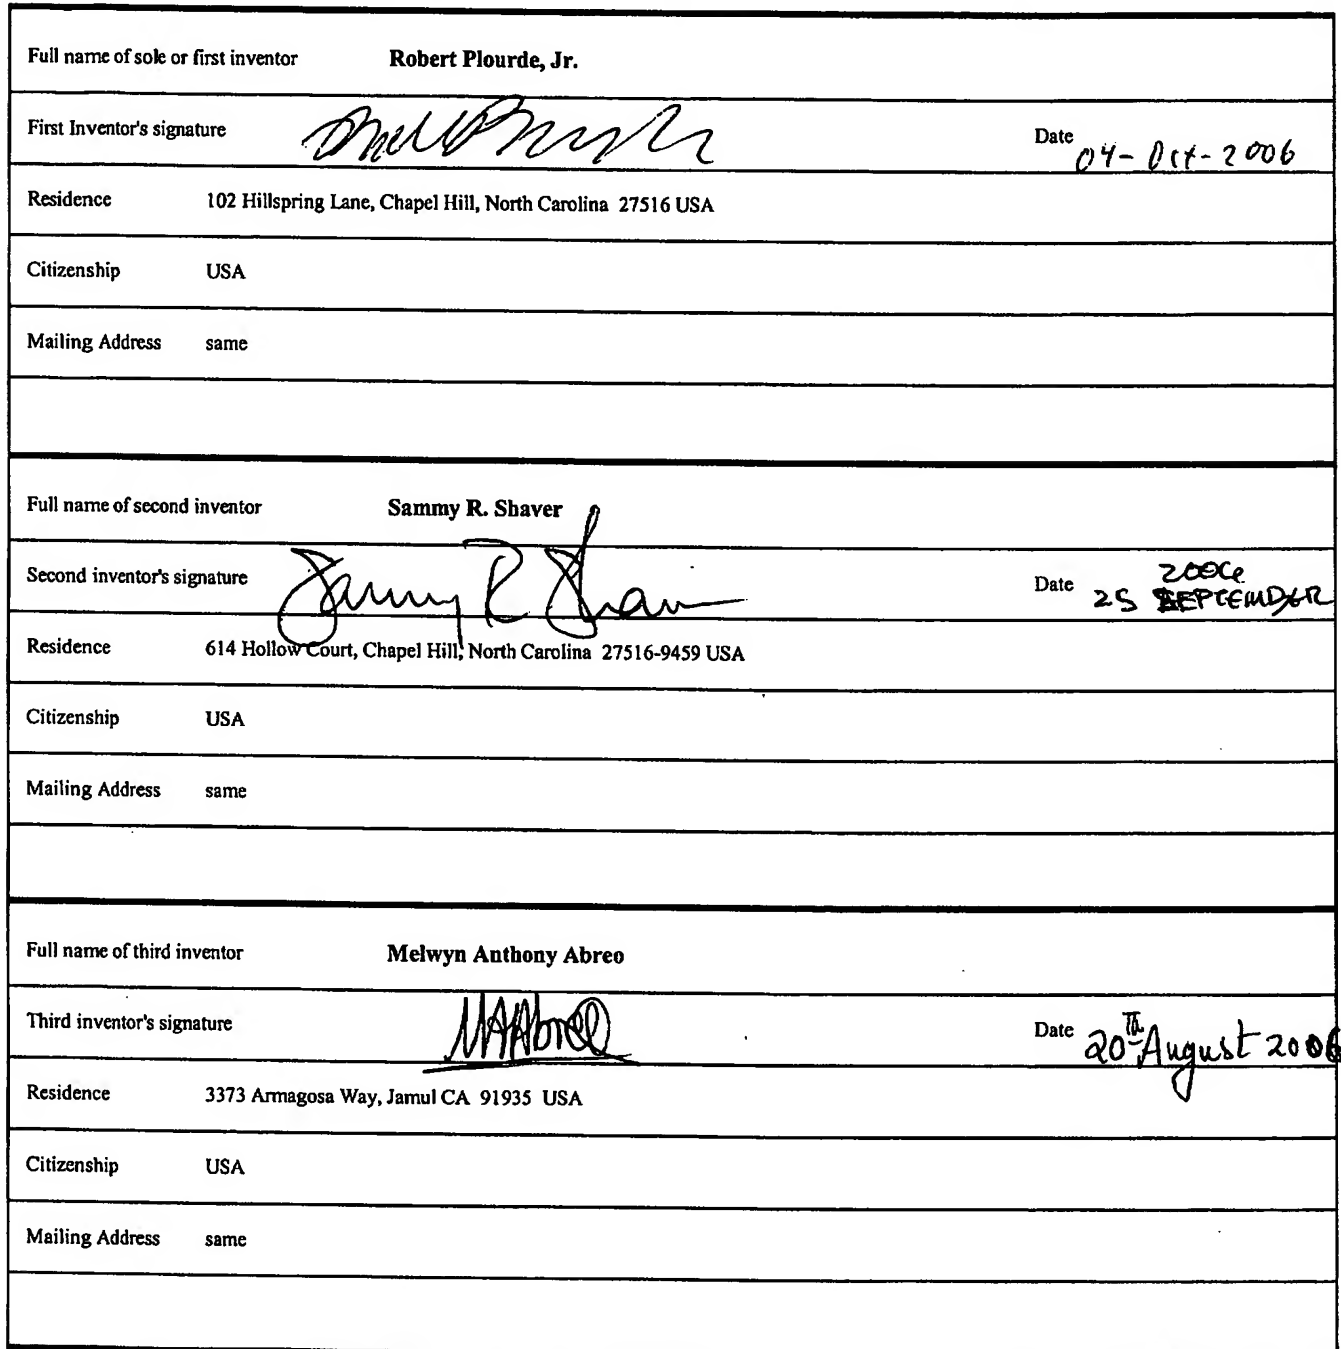 Full name of sole or first inventor Robert Plourde, Jr.
First Inventor's signature Date 04-Oct-2006
Residence 102 Hillspring Lane, Chapel Hill, North Carolina 27516 USA
Citizenship USA
Mailing Address same
Full name of second inventor Sammy R. Shaver
2006
Second inventor's signature Sammy R Shaver Date 25 SEPTEMBER
Residence 614 Hollow Court, Chapel Hill, North Carolina 27516-9459 USA
Citizenship USA
Mailing Address same
Full name of third inventor Melwyn Anthony Abreo
Third inventor's signature MAAbreo Date 20Th August 2006
Residence 3373 Armagosa Way, Jamul CA 91935 USA
Citizenship USA
Mailing Address same